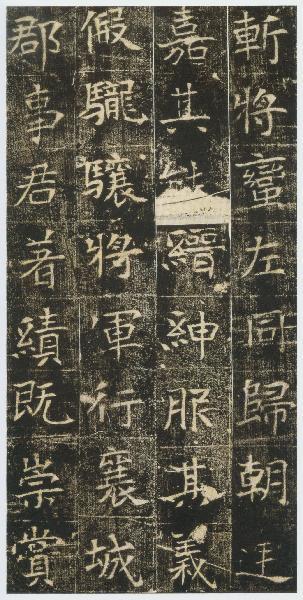 斬將蠻左同歸朝廷
嘉其縉紳服其義
假䮾驤將軍行襄城
郡事君著績既崇賞